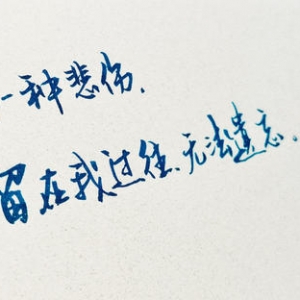 一种悲伤.
留在我过往.无法遗忘.